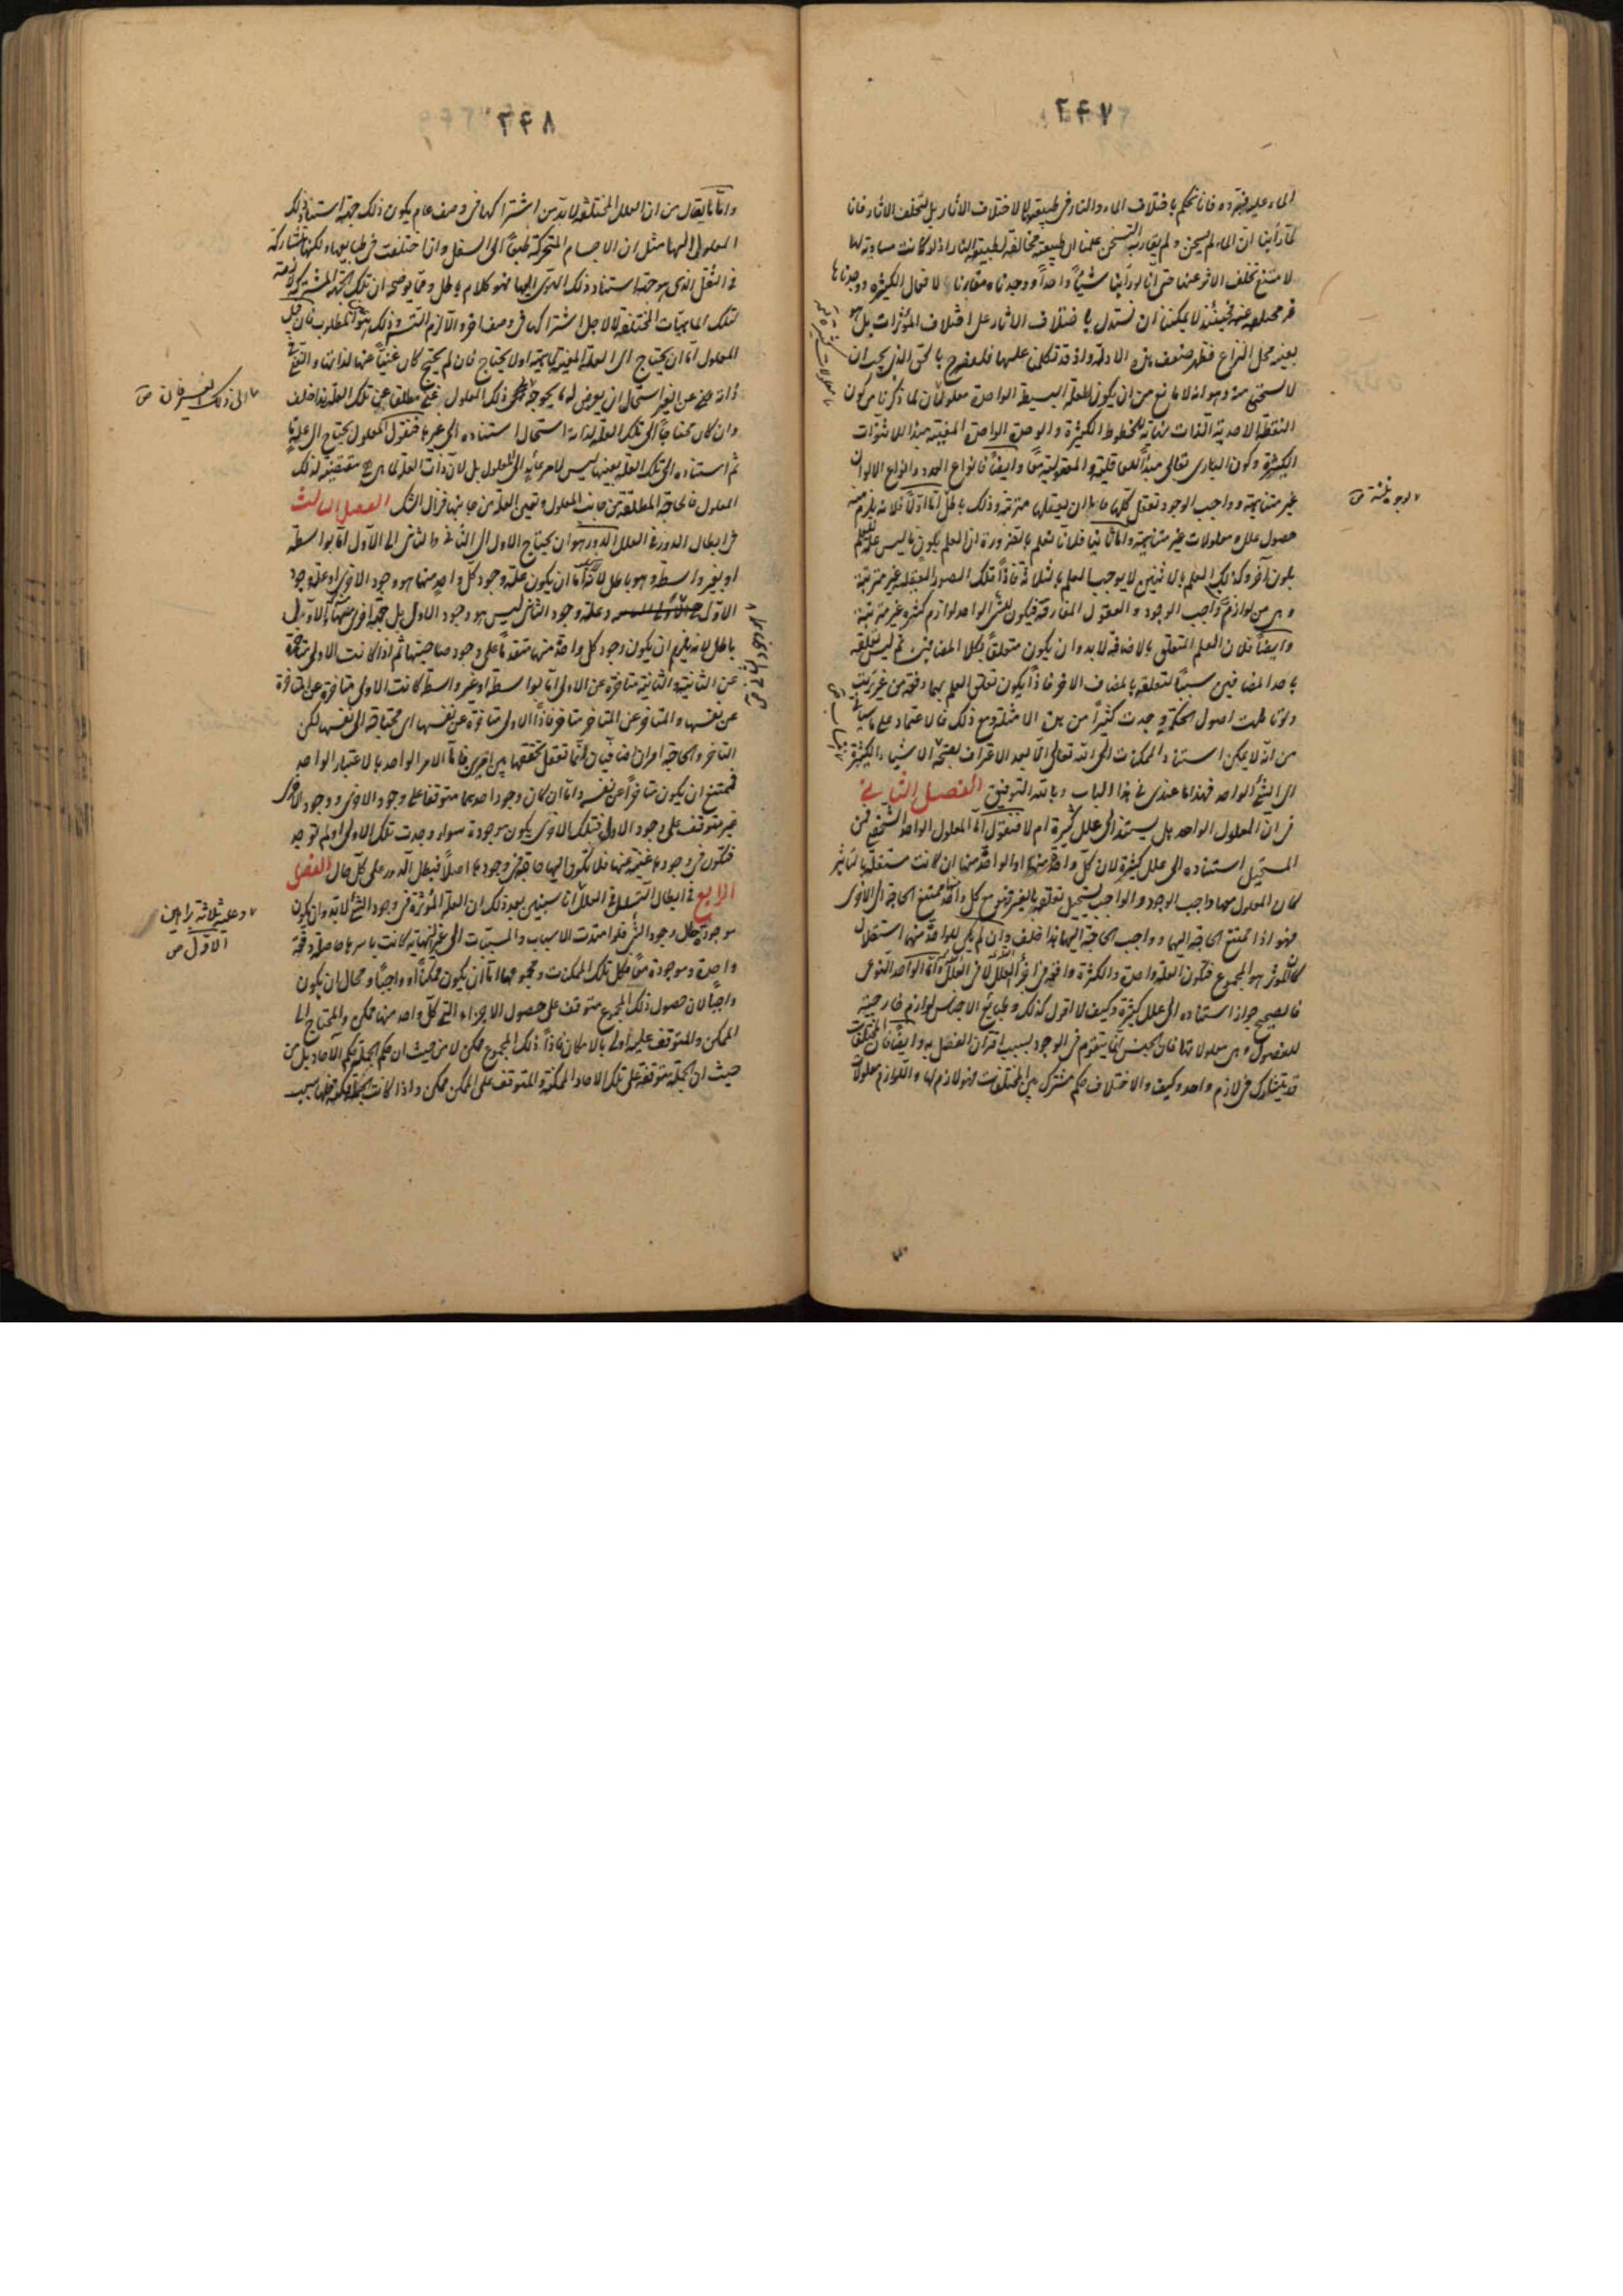 ٢٤٧
الماء عليه برده فانا نحكم باختلاف الماء والنار فى طبيعتهما لا لاختلاف الآثار بل لتخلف الآثار فانا
لما رأينا ان الماء لم يسخن ولم يقارنه التسخن علمنا ان طبيعته مخالفة لطبيعة النار اذ لو كانت مساوية لها
لامتنع تخلف الاثر عنها حتى انا لو رأينا شيئا واحدا ووجدناه مقارنا لافعال الكثيرة ووجدناها
غير مختلفة عنه فحينئذ لا يمكننا ان نستدل باختلاف الآثار على اختلاف المؤثرات بل هو
بعينه محل النزاع فظهر ضعف هذه الادلة واذ قد تكلمنا عليها فلنصرح بالحق الذى يجب ان
لا يستحيى منه وهو انه لا مانع من ان يكون للعلة البسيطة الواحدة معلولات لما ذكرنا من كون
النقطة الاحدية الذات نهاية للخطوط الكثيرة والوحدة الواحدة المعينة مبدأ للاثنوات
الكثيرة وكون البارى تعالى مبدأ للعاقلية والمعقولية معا وايضا فانواع العدد وانواع الالوان
غير متناهية وواجب الوجود تعقل كلها فاما ان يعقلها مترتبة وذلك باطل اما اولا فلانه يلزم منه
حصول علل ومعلولات غير متناهية واما ثانيا فلانا نعلم بالضرورة ان العلم بكون ما ليس علة للعلم
بلون آخر وكذلك العلم بالاثنين لا يوجب العلم بالثلاثة فاذا تلك الصور العقلية غير مترتبة
وهى من لوازم واجب الوجود والعقول المفارقة فيكون للشئ الواحد لوازم كثيرة غير مترتبة
وايضا فلان العلم المتعلق بالاضافة لا بد وان يكون متعلقا بكلا المضافين ثم ليس تعلقه
باحد المضافين سببا لتعلقه بالمضاف الاخر فاذا يكون تعلق العلم بهما دفعة من غير ترتيب
ولو تاملت اصول الحكمة وجدت كثيرا من هذه الامثلة ومع ذلك فالاعتماد على ما سياتى
من انه لا يمكن استناد الممكنات الى الله تعالى الا بعد الاعتراف بصحة الاشياء الكثيرة
الى الشئ الواحد فهذا ما عندى فى هذا الباب وبالله التوفيق الفصل الثانى
فى ان المعلول الواحد هل يستند الى علل كثيرة ام لا فنقول اما المعلول الواحد الشخصى فمن
المستحيل استناده الى علل كثيرة لان كل واحد منها او الواحد منها ان كانت مستقلة بالتاثير
كان المعلول معها واجب الوجود والواجب يستحيل تعلقه بالغير فهو مع كل واحد منها ممتنع الحاجة الى الاخرى
فهو اذا ممتنع الحاجة اليها وواجب الحاجة اليها هذا خلف وان لم يكن للواحد منها استقلال
كان المؤثر هو المجموع فتكون العلة واحدة والكثرة واقعة فى اجزاء العلة لا فى العلة واما الواحد النوعى
فالصحيح جواز استناده الى علل كثيرة وكيف لا اقول كذلك وطبائع الاجناس لوازم خارجية
للفصول وهى معلولاتها فان الجنس انما يتقوم فى الوجود بسبب اقتران الفصل به وايضا فان المختلفات
قد يتشارك فى لازم واحد وكيف والاختلاف حكم مشترك بين المختلفات فهو لازم لها واللوازم معلولات
٢٤٨
واما ما يقال من ان العلل المختلفة لا بد من اشتراكها فى وصف عام يكون ذلك جهة استناد ذلك
المعلول اليها مثل ان الاجسام المتحركة طبعا الى السفل وان اختلفت فى طبايعها ولكنها متشاركة
فى الثقل الذى هو جهة استناد ذلك الهوى اليها فهو كلام باطل ومما يوضحه ان تلك الجهة المشتركة لازمة
لتلك الماهيات المختلفة لا لاجل اشتراكها فى وصف اخر والا لزم التسلسل وذلك هو المطلوب فان قيل
المعلول اما ان يحتاج الى العلة المعينة لماهيته او لا يحتاج فان لم يحتج كان غنيا عنها لذاته والغنى
ذاته عن الغير استحال ان يعرض له ما يحوجه ذلك المعلول غنى مطلقا عن تلك العلة هذا خلف
وان كان محتاجا الى تلك العلة لذاته استحال استناده الى غيرها فنقول المعلول يحتاج الى علة ما
ثم استناده الى تلك العلة بعينها ليس لامر عائد الى المعلول بل لان ذات العلة لما هى هى مقتضية لذلك
المعلول فالحاجة المطلقة من جانب المعلول وتعين العلة من جانبها فزال الشك الفصل الثالث
فى ابطال الدور فى العلل الدور هو ان يحتاج الاول الى الثانى والثانى الى الاول اما بواسطة
او بغير واسطة وهو باطل لانه اما ان يكون علة وجود كل واحد منهما هو وجود الاخرى او علة وجود
الاول وعلة وجود الثانى ليس هو وجود الاول بل جهة اخرى منها والاول
باطل لانه يلزم ان يكون وجود كل واحدة منهما متقدما على وجود صاحبتها ثم اذا كانت الاولى متاخرة
عن الثانية والثانية متاخرة عن الاولى اما بواسطة او بغير واسطة كانت الاولى متاخرة عن المتاخرة
عن نفسها والمتاخر عن المتاخر متاخر فاذا الاولى متاخرة عن نفسها اى محتاجة الى نفسها لكن
التاخر والحاجة امران اضافيان انما تعقل تحققهما بين امرين فاما الامر الواحد بالاعتبار الواحد
فيمتنع ان يكون متاخرا عن نفسه واما ان كان وجود احدهما متوقفا على وجود الاخرى ووجود الاخرى
غير متوقف على وجود الاولى فتلك الاخرى يكون موجودة سواء وجدت تلك الاولى او لم توجد
فتكون فى وجودها غنية عنها فلا تكون اليها حاجة فى وجودها اصلا فبطل الدور على كل حال الفصل
الرابع فى ابطال التسلسل فى العلل انا سنبين بعد ذلك ان العلة المؤثرة فى وجود الشئ لا بد وان يكون
موجودة حال وجود الشئ فلو امتدت الاسباب والمسببات الى غير النهاية لكانت باسرها حاصلة دفعة
واحدة وموجودة معا فكل تلك الممكنات ومجموعها اما ان يكون ممكنا او واجبا ومحال ان يكون
واجبا لان حصول ذلك المجموع متوقف على حصول الاجزاء التى كل واحد منها ممكن والمحتاج الى
الممكن والمتوقف عليه اولى بالامكان فاذا ذلك المجموع ممكن لا من حيث ان حكم الجملة حكم الآحاد بل من
حيث ان الجملة متوقفة على تلك الآحاد الممكنة والمتوقف على الممكن ممكن واذا كانت الجملة ممكنة فلها سبب
الى ذلك الغير فان ص
وعليه ثلاثة براهين
الاول ص